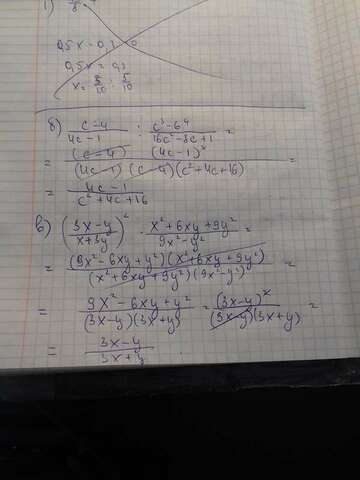 1)
0,5x - 0,3 0
0,5x = 0,3
x = 3/10 : 5/10
б) (c-4)/(4c-1) : (c³-64)/(16c²-8c+1) =
= ((c-4) (4c-1)²)/((4c-1) (c-4)(c²+4c+16)) =
= (4c-1)/(c²+4c+16)
в) ((3x-y)/(x+3y))² · (x²+6xy+9y²)/(9x²-y²) =
= ((9x²-6xy+y²)(x²+6xy+9y²))/((x²+6xy+9y²)(9x²-y²)) =
= (9x²-6xy+y²)/((3x-y)(3x+y)) = (3x-y)²/((3x-y)(3x+y)) =
= (3x-y)/(3x+y)